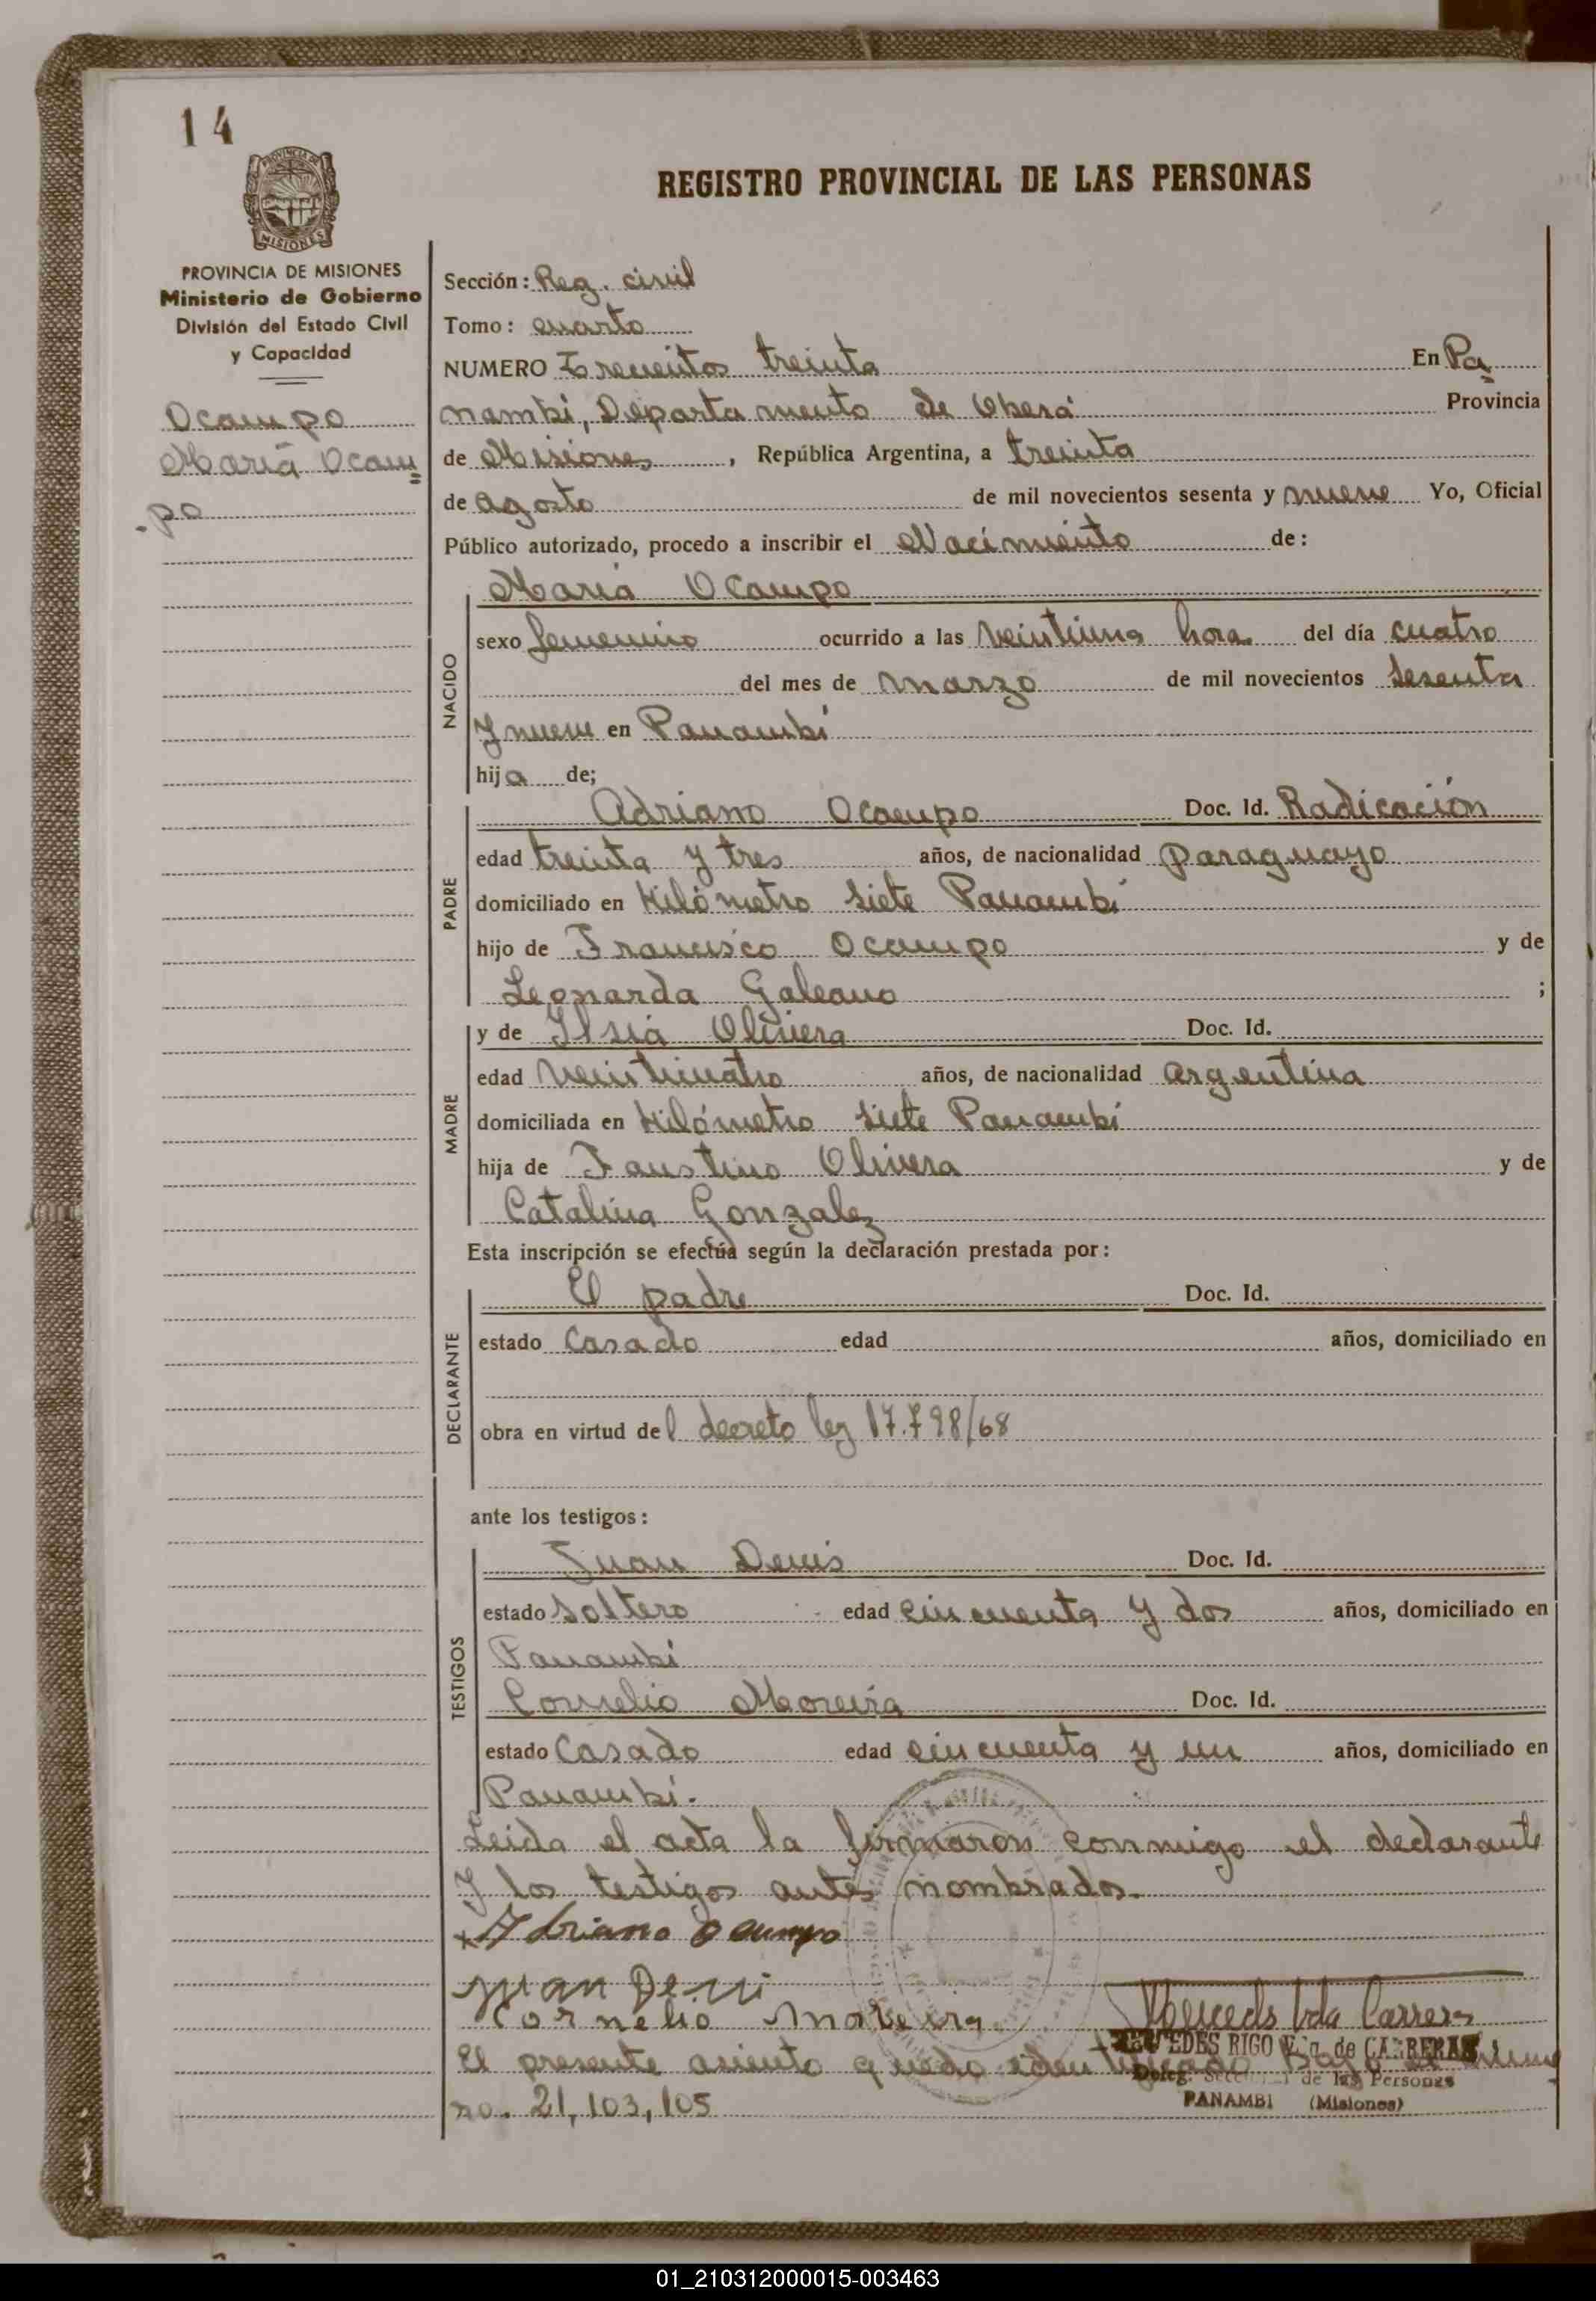 14
PROVINCIA DE
MISIONES
REGISTRO PROVINCIAL DE LAS PERSONAS
PROVINCIA DE MISIONES
Ministerio de Gobierno
División del Estado Civil
y Capacidad
Ocampo
María Ocam=
-po
Sección: Reg. civil
Tomo: cuarto
NUMERO Trecientos treinta En Pa=
nambí, Departamento de Oberá Provincia
de Misiones, República Argentina, a treinta
de agosto de mil novecientos sesenta y nueve Yo, Oficial
Público autorizado, procedo a inscribir el Nacimiento de:
María Ocampo
NACIDO
sexo femenino ocurrido a las veintiuna hora del día cuatro
del mes de marzo de mil novecientos sesenta
y nueve en Panambí
hija de;
PADRE
Adriano Ocampo Doc. Id. Radicación
edad treinta y tres años, de nacionalidad paraguayo
domiciliado en Kilómetro siete Panambí
hijo de Francisco Ocampo y de
Leonarda Galeano ;
MADRE
y de Ilsia Olivera Doc. Id.
edad veinticuatro años, de nacionalidad argentina
domiciliada en Kilómetro siete Panambí
hija de Faustino Olivera y de
Catalina Gonzalez
Esta inscripción se efectúa según la declaración prestada por:
DECLARANTE
El padre Doc. Id.
estado Casado edad años, domiciliado en
obra en virtud del decreto ley 17.798/68
ante los testigos:
TESTIGOS
Juan Denis Doc. Id.
estado soltero edad cincuenta y dos años, domiciliado en
Panambí
Cornelio Moreira Doc. Id.
estado Casado edad cincuenta y un años, domiciliado en
Panambí.
Leida el acta la firmaron conmigo el declarante
y los testigos antes nombrados.
x Adriano Ocampo
Juan Deni
Cornelio Moreira Mercedes Vda Carrera
MERCEDES RIGO Vda. de CARRERAS
El presente asiento quedo identificado Bajo el nume
Deleg. Seccional de las Personas
ro. 21,103,105
PANAMBI (Misiones)
01_210312000015-003463